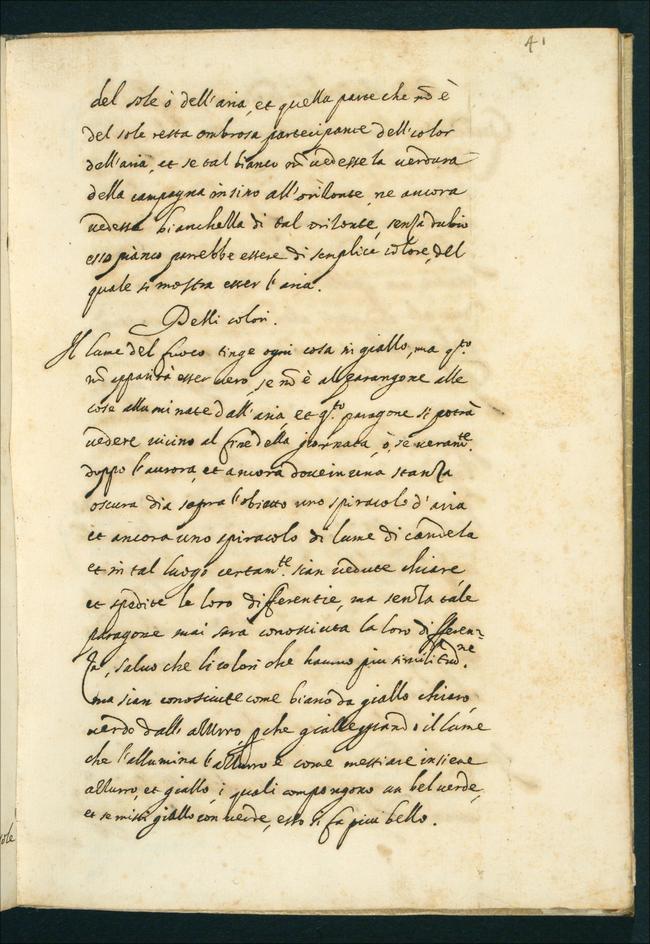 41
del sole ò dell'aria, et quella parte che nõ è
del sole resta ombrosa partecipante dell'color
dell'aria, et se tal bianco nõ vedesse la verdura
della campagna insino all'orizonte, ne ancora
vedesse bianchezza di tal orizonte, senza dubio
esso bianco parebbe essere di semplice colore, del
quale si mostra esser l'aria.
Delli colori.
Il lume del fuoco tinge ogni cosa in giallo, ma q.to
nõ apparirà esser vero, se nõ è al parangone alle
cose alluminate dall'aria, et q.to paragone si potrà
vedere vicino al fine della giornata, ò, se veram.te
doppo l'aurora, et ancora dove in una stanza
oscura dia sopra l'obietto uno spiracolo d'aria
et ancora uno spiracolo di lume di candela
et in tal luogo certam.te sian vedute chiare
et spedite le loro differentie, ma senza tale
paragone mai sera conosciuta la loro differen=
za, salvo che li colori che hanno piu similitud.ne
ma sian conosciute come bianco da giallo chiaro,
verdo dallo azurro p che gialleggiando il lume
che l'allumina l'azurro è come mestiare insieme
azurro, et giallo, i quali compongono un bel verde,
et se misti giallo con verde, esso si fa piu bello.
sole